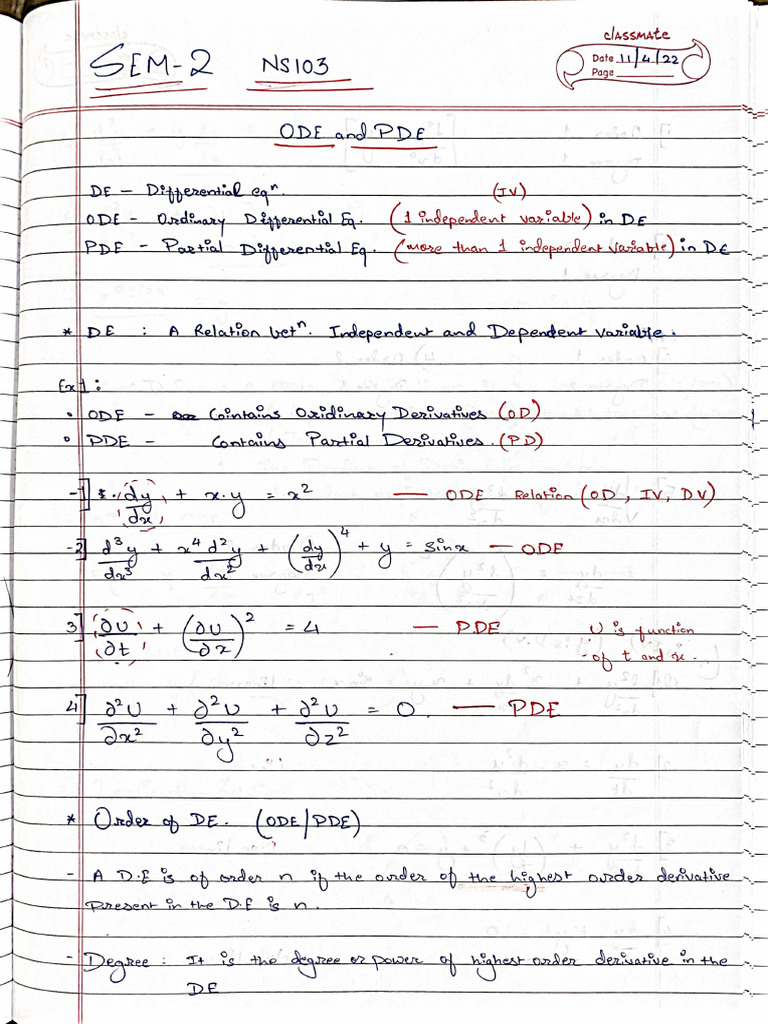 classmate
Date 11/4/22
Page
SEM-2 NS103
ODE and PDE
DE – Differential eqⁿ. (IV)
ODE - Ordinary Differential Eq. (1 independent variable) in DE
PDE - Partial Differential Eq. (more than 1 independent variable) in DE
* DE : A Relation betⁿ. Independent and Dependent variable.
Ex 1:
• ODE - Cointains Oridinary Derivatives (OD)
• PDE - Contains Partial Derivatives. (PD)
-1] dy/dx + x.y = x² — ODE Relation (OD, IV, DV)
-2] d³y/dx³ + x⁴ d²y/dx² + (dy/dx)⁴ + y = sinx — ODE
3] ∂U/∂t + (∂U/∂x)² = 4 — P.DE U is function
of t and x.
4] ∂²U/∂x² + ∂²U/∂y² + ∂²U/∂z² = 0. — PDE
* Order of DE. (ODE/PDE)
- A D.E is of order n if the order of the highest order derivative
present in the D.E is n.
- Degree : It is the degree or power of highest order derivative in the
DE